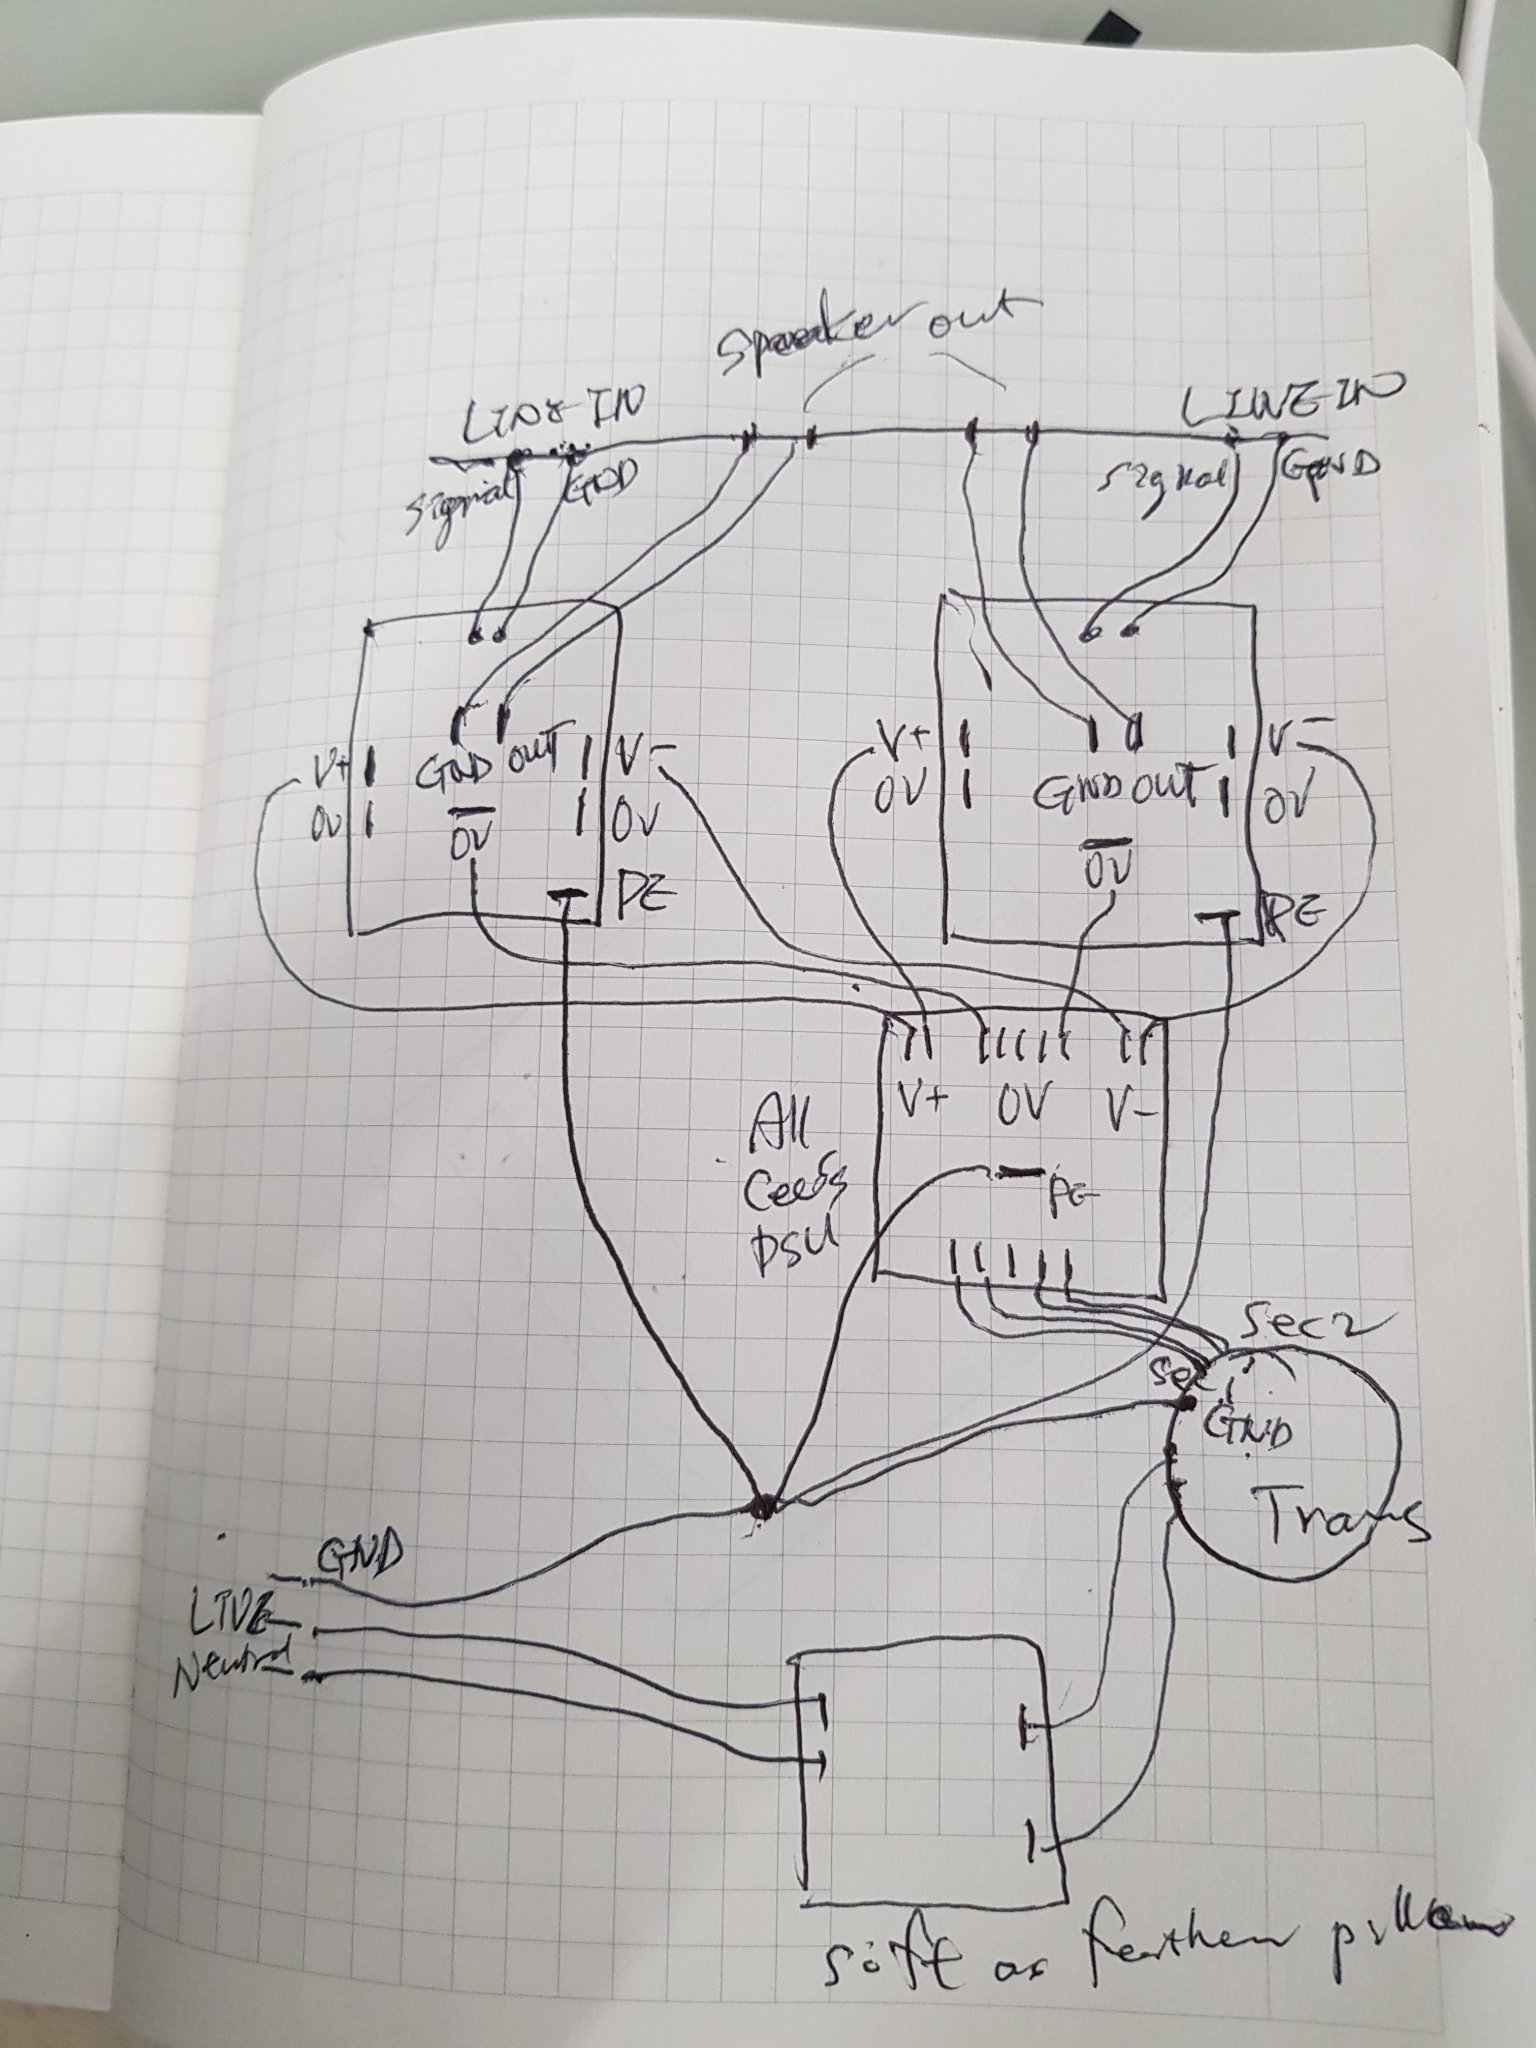 Speaker out
LINE-IN
LINE-IN
Signal
GND
Signal
GND
V+
GND OUT
V-
0V
0V
0V
PE
V+
GND OUT
V-
0V
0V
0V
PE
V+ 0V V-
All
PSU
PE
Sec2
Sec1
GND
Trans
GND
LIVE
Neutral
Soft as feather pillow